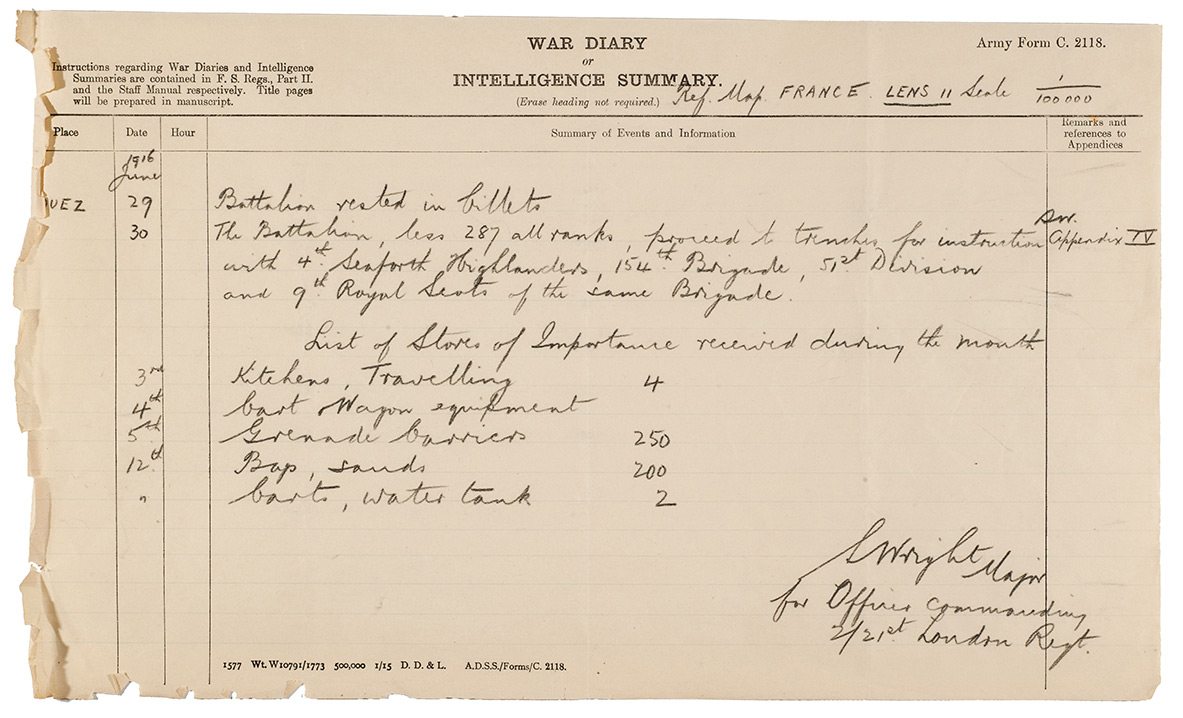 WAR DIARY
or
INTELLIGENCE SUMMARY.
(Erase heading not required.)
Army Form C. 2118.
Instructions regarding War Diaries and Intelligence
Summaries are contained in F. S. Regs., Part II.
and the Staff Manual respectively. Title pages
will be prepared in manuscript.
Ref. Map. FRANCE. LENS 11 Scale 1/100000
Place Date Hour Summary of Events and Information Remarks and references to Appendices
1916
June
UEZ 29 Battalion rested in billets
30 The Battalion, less 287 all ranks, proceed to trenches for instruction Appendix IV
with 4th Seaforth Highlanders, 154th Brigade, 51st Division
and 9th Royal Scots of the same Brigade.
List of Stores of Importance received during the month
3rd Kitchens, Travelling 4
4th Cart Wagon equipment
5th Grenade Carriers 250
12th Bags, sands 200
" Carts, water tank 2
S Wright Major
for Officer commanding
2/21st London Regt.
1577 Wt. W10791/1773 500,000 1/15 D. D. & L. A.D.S.S./Forms/C. 2118.